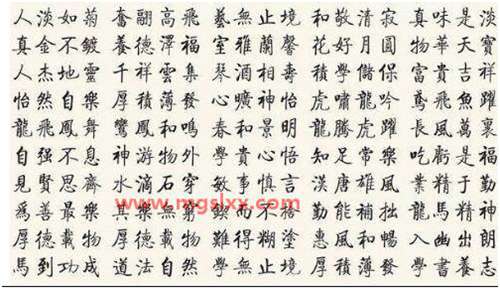 人淡如菊 奮翮高飛 藝無止境 和敬清寂 真味是淡
真金不鍍 養德澤福 室雅蘭馨 花好月圓 物華天寶
人杰地靈 千祥雲集 琴酒相壽 學儲保 富貴吉祥
怡然自樂 厚積薄發 心曠神怡 虎嘯龍吟 鳶飛魚躍
龍飛鳳舞 鸞鳳和鳴 春和景明 龍騰虎躍 長風萬裏
自强不息 神游物外 學貴心悟 知足常樂 吃虧是福
見賢思齊 水滴石穿 敏事慎言 漢唐雄風 業精于勤
www.mgslxx.com
爲善最樂 其樂無窮 而不 勤能補拙 龍馬精神
厚德載物 難得糊塗 惠風和暢 入幽出朗
馬到功成 道法自然 學無止境 厚積薄發 學書養志